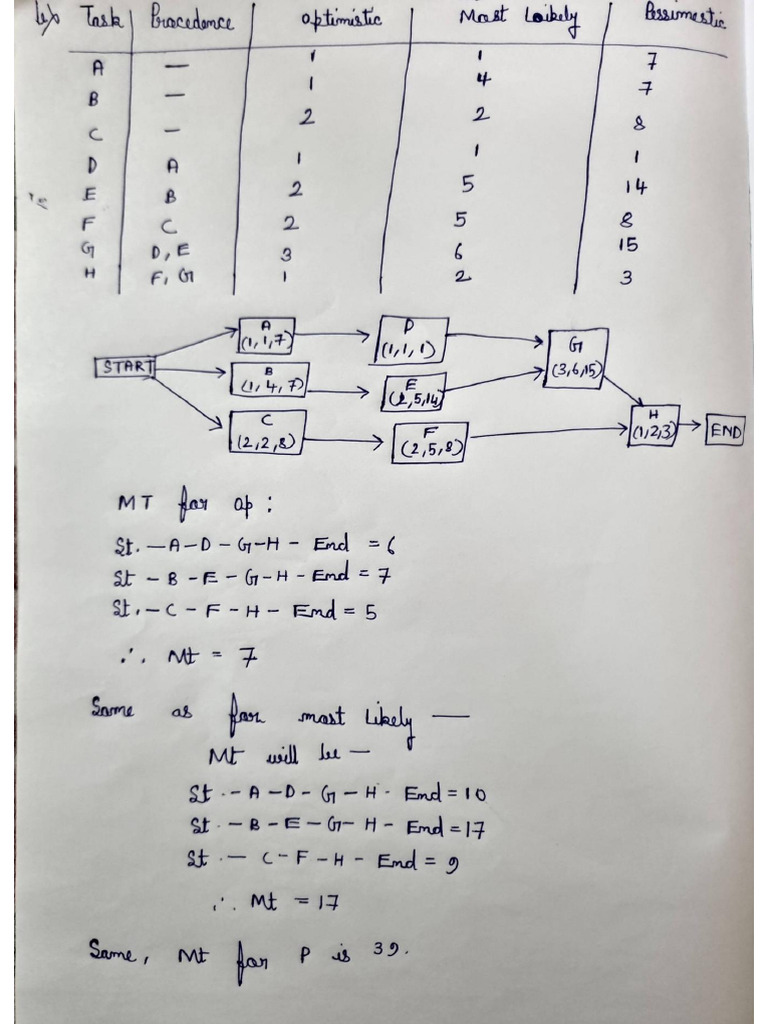 Ex Task Procedence optimistic Most Laikely Pessimestic
A — 1 1 7
B — 1 4 7
C — 2 2 8
D A 1 1 1
E B 2 5 14
F C 2 5 8
G D, E 3 6 15
H F, G 1 2 3
START
A
(1,1,7)
D
(1,1,1)
G
(3,6,15)
B
(1,4,7)
E
(2,5,14)
C
(2,2,8)
F
(2,5,8)
H
(1,2,3)
END
MT for op:
St. – A – D – G – H – End = 6
St – B – E – G – H – End = 7
St. – C – F – H – End = 5
∴ Mt = 7
Same as for most likely —
Mt will be —
St. – A – D – G – H - End = 10
St. – B – E – G – H – End = 17
St. – C – F – H – End = 9
∴ Mt = 17
Same, Mt for P is 39.